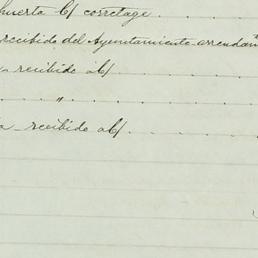 huerta c/ corretage
recibido del Ayuntamiento arrendam
recibido a c/
"
recibido a c/